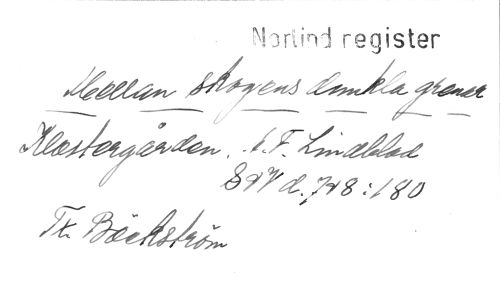 Norlind register
Mellan skogens dunkla grenar
Klostergården. A.F. Lindblad
SvV d. 728:180
Tr. Bäckström